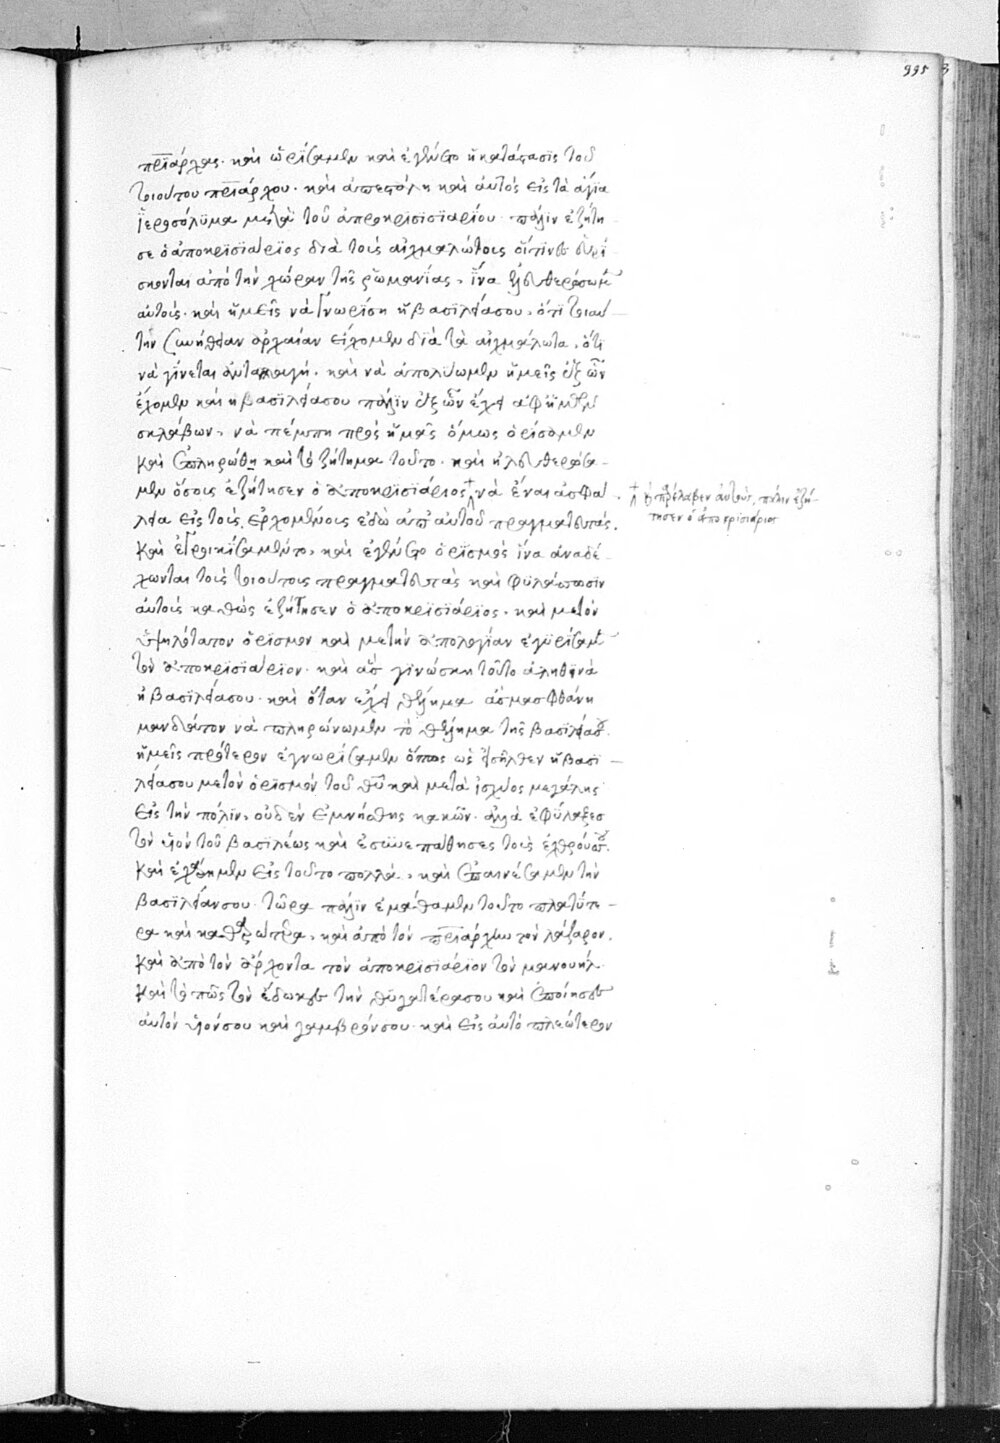 995 3
πριάρχας. καὶ ὡρίσαμεν καὶ ἐγένετο ἡ κατάστασις τοῦ
τοιούτου πριάρχου. καὶ ἀπεστάλη καὶ αὐτὸς εἰς τὰ ἅγια
ἱεροσόλυμα μετὰ τοῦ ἀποκρισιαρίου. πάλιν ἐζήτη-
σε ὁ ἀποκρισιάριος διὰ τοὺς αἰχμαλώτους οἵτινες εὑρί-
σκονται ἀπὸ τὴν χώραν τῆς ῥωμανίας, ἵνα ἐλευθερώσωμεν
αὐτούς. καὶ ἡμεῖς νὰ γνωρίση ἡ βασιλείασου, ὅτι τοιαύ-
την συνήθειαν ἀρχαίαν εἴχομεν διὰ τὰ αἰχμάλωτα, ὅτι
νὰ γίνεται ἀνταλλαγή. καὶ νὰ ἀπολύωμεν ἡμεῖς ἐξ ὧν
ἔχομεν καὶ ἡ βασιλείασου πάλιν ἐξ ὧν ἔχει ἀφ' ἡμῶν
σκλάβων, νὰ πέμπη πρὸς ἡμᾶς ὅμως ὁρίσαμεν
καὶ ἐπληρώθη καὶ τὸ ζήτημα τοῦτο. καὶ ἠλευθερώσα-
μεν ὅσους ἐζήτησεν ὁ ἀποκρισιάριος νὰ ἔναι ἀσφά-
λεια εἰς τοὺς ἐρχομένους ἐδὼ ἀπ' αὐτοῦ πραγματευτάς.
καὶ ἐγροικήσαμέντο, καὶ ἐγένετο ὁρισμὸς ἵνα ἀναδέ-
χωνται τοὺς τοιούτους πραγματευτὰς καὶ φυλάττωσιν
αὐτοὺς καθὼς ἐζήτησεν ὁ ἀποκρισιάριος. καὶ μετὸν
ὑψηλότατον ὁρισμὸν καὶ μετὴν ἀπολογίαν ἐγυρίσαμεν
τὸν ἀποκρισιάριον. καὶ ἂς γινώσκη τοῦτο ἀληθινὰ
ἡ βασιλείασου. καὶ ὅταν ἔχει θέλημα ἂςμας φθάνη
μανδάτον νὰ πληρώνωμεν τὸ θέλημα τῆς βασιλείας.
ἡμεῖς πρότερον ἐγνωρίσαμεν ὅπως ὡς εἰσῆλθεν ἡ βασι-
λείασου μετὸν ὁρισμὸν τοῦ θῦ καὶ μετὰ ἰσχύος μεγάλης
εἰς τὴν πόλιν, οὐδὲν ἐμνήσθης κακῶν. ἀλλὰ ἐφύλαξες
τὸν υἱὸν τοῦ βασιλέως καὶ ἐσυνεπάθησες τοὺς ἐχθρούς.
καὶ ἐχάρημεν εἰς τοῦτο πολλά, καὶ ἐπαινέσαμεν τὴν
βασιλείανσου. τώρα πάλιν ἐμάθαμεν τοῦτο πλατύτε-
ρα καὶ καθαρώτερα, καὶ ἀπὸ τὸν πριάρχην τὸν λάζαρον.
καὶ ἀπὸ τὸν ἄρχοντα τὸν ἀποκρισιάριον τὸν μανουήλ.
καὶ τὸ πῶς τὸν ἔδωκες τὴν θυγατέρασου καὶ ἐποίησες
αὐτὸν υἱόνσου καὶ γαμβρόνσου. καὶ εἰς αὐτὸ πλεώτερον
καὶ παρέλαβεν αὐτούς, πάλιν ἐζή-
τησεν ὁ ἀποκρισιάριος